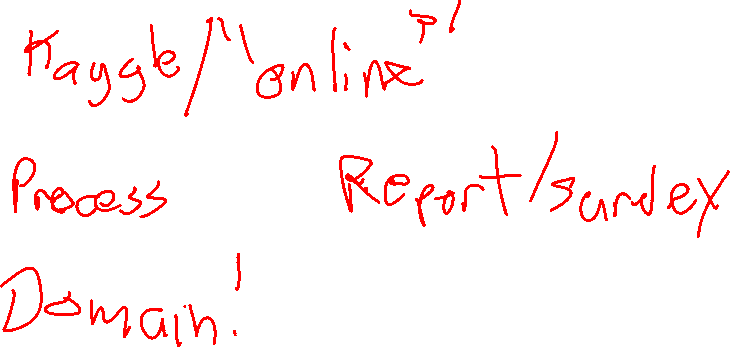 Kaggle/"online"
Process Report/
Domain!